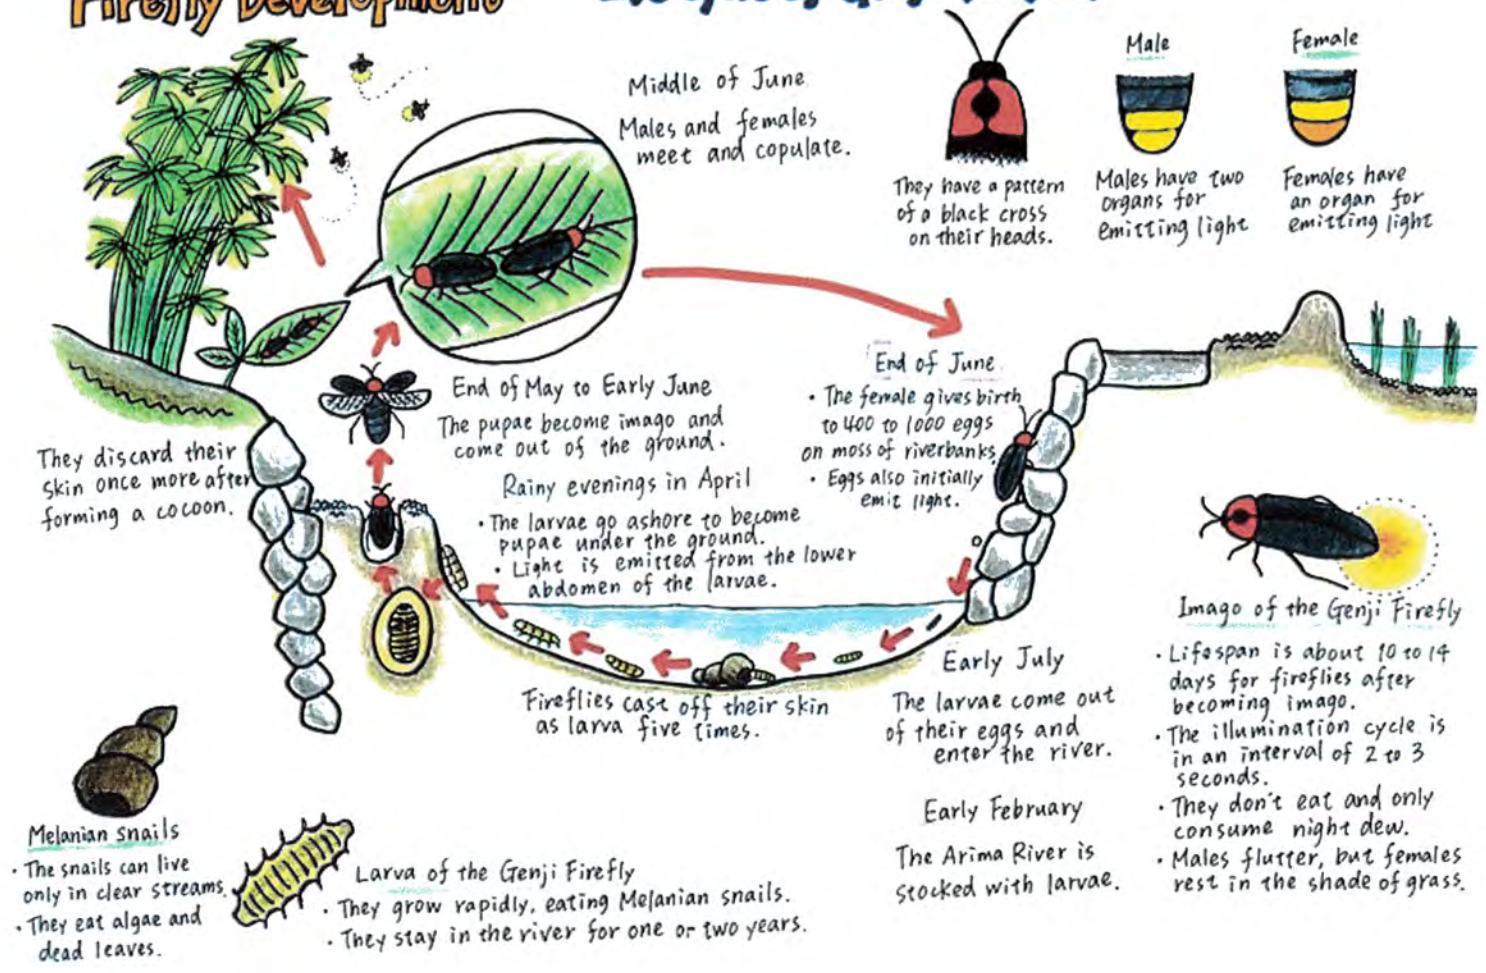 Firefly Development
Middle of June
Males and females
meet and copulate.
Male
Female
They have a pattern
of a black cross
on their heads.
Males have two
organs for
emitting light
Females have
an organ for
emitting light
End of May to Early June
The pupae become imago and
come out of the ground.
End of June
• The female gives birth
to 400 to 1000 eggs
on moss of riverbanks.
• Eggs also initially
emit light.
They discard their
skin once more after
forming a cocoon.
Rainy evenings in April
• The larvae go ashore to become
pupae under the ground.
• Light is emitted from the lower
abdomen of the larvae.
Fireflies cast off their skin
as larva five times.
Early July
The larvae come out
of their eggs and
enter the river.
Early February
The Arima River is
stocked with larvae.
Imago of the Genji Firefly
• Lifespan is about 10 to 14
days for fireflies after
becoming imago.
• The illumination cycle is
in an interval of 2 to 3
seconds.
• They don't eat and only
consume night dew.
• Males flutter, but females
rest in the shade of grass.
Melanian snails
• The snails can live
only in clear streams.
• They eat algae and
dead leaves.
Larva of the Genji Firefly
• They grow rapidly, eating Melanian snails.
• They stay in the river for one or two years.